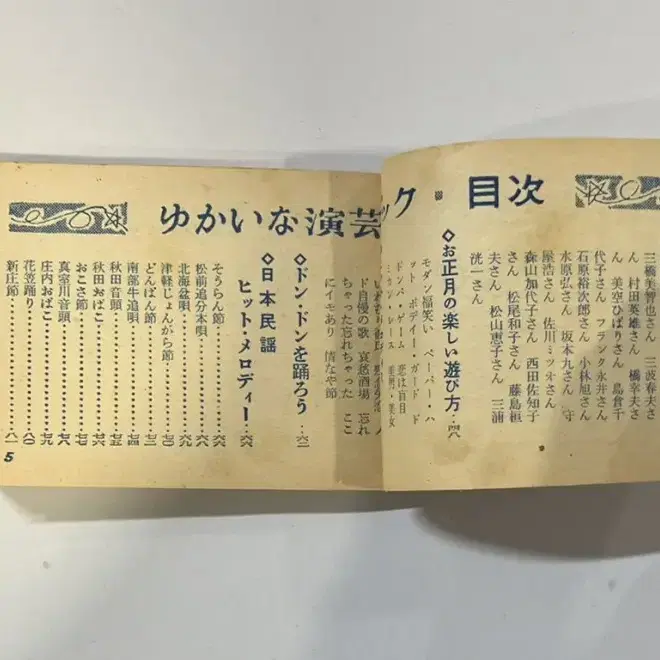 ゆかいな演芸
ック
目次
三橋美智也さん 三波春夫さ
ん 村田英雄さん 橋幸夫さ
ん 美空ひばりさん 島倉千
代子さん フランク永井さん
石原裕次郎さん 小林旭さん
水原弘さん 坂本九さん 守
屋浩さん 佐川ミツオさん
森山加代子さん 西田佐知子
さん 松尾和子さん 藤島桓
夫さん 松山恵子さん 三浦
洸一さん
◇お正月の楽しい遊び方…四八
モダン福笑い ペーパー・ハ
ット ボデイー・ガード ド
ンパ・ゲーム 恋は盲目
ミカン・レース 美男・美女
ド自慢の歌 哀愁酒場 忘れ
ちゃった忘れちゃった ここ
にイモあり 情なや節
◇ドン・ドンを踊ろう…六二
◇日本民謡
ヒット・メロディー…六六
そうらん節…六六
松前追分本唄…六八
北海盆唄…六九
津軽じょんがら節…七〇
どんぱん節…七三
南部牛追唄…七四
秋田音頭…七五
秋田おばこ…七六
おこさ節…七七
真室川音頭…七八
庄内おばこ…七九
花笠踊り…八〇
新庄節…八一
5